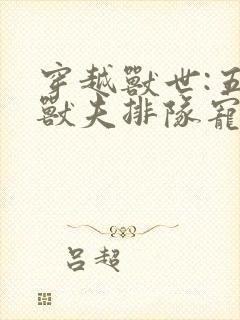 穿越獸世:五
獸夫排隊寵
呂超